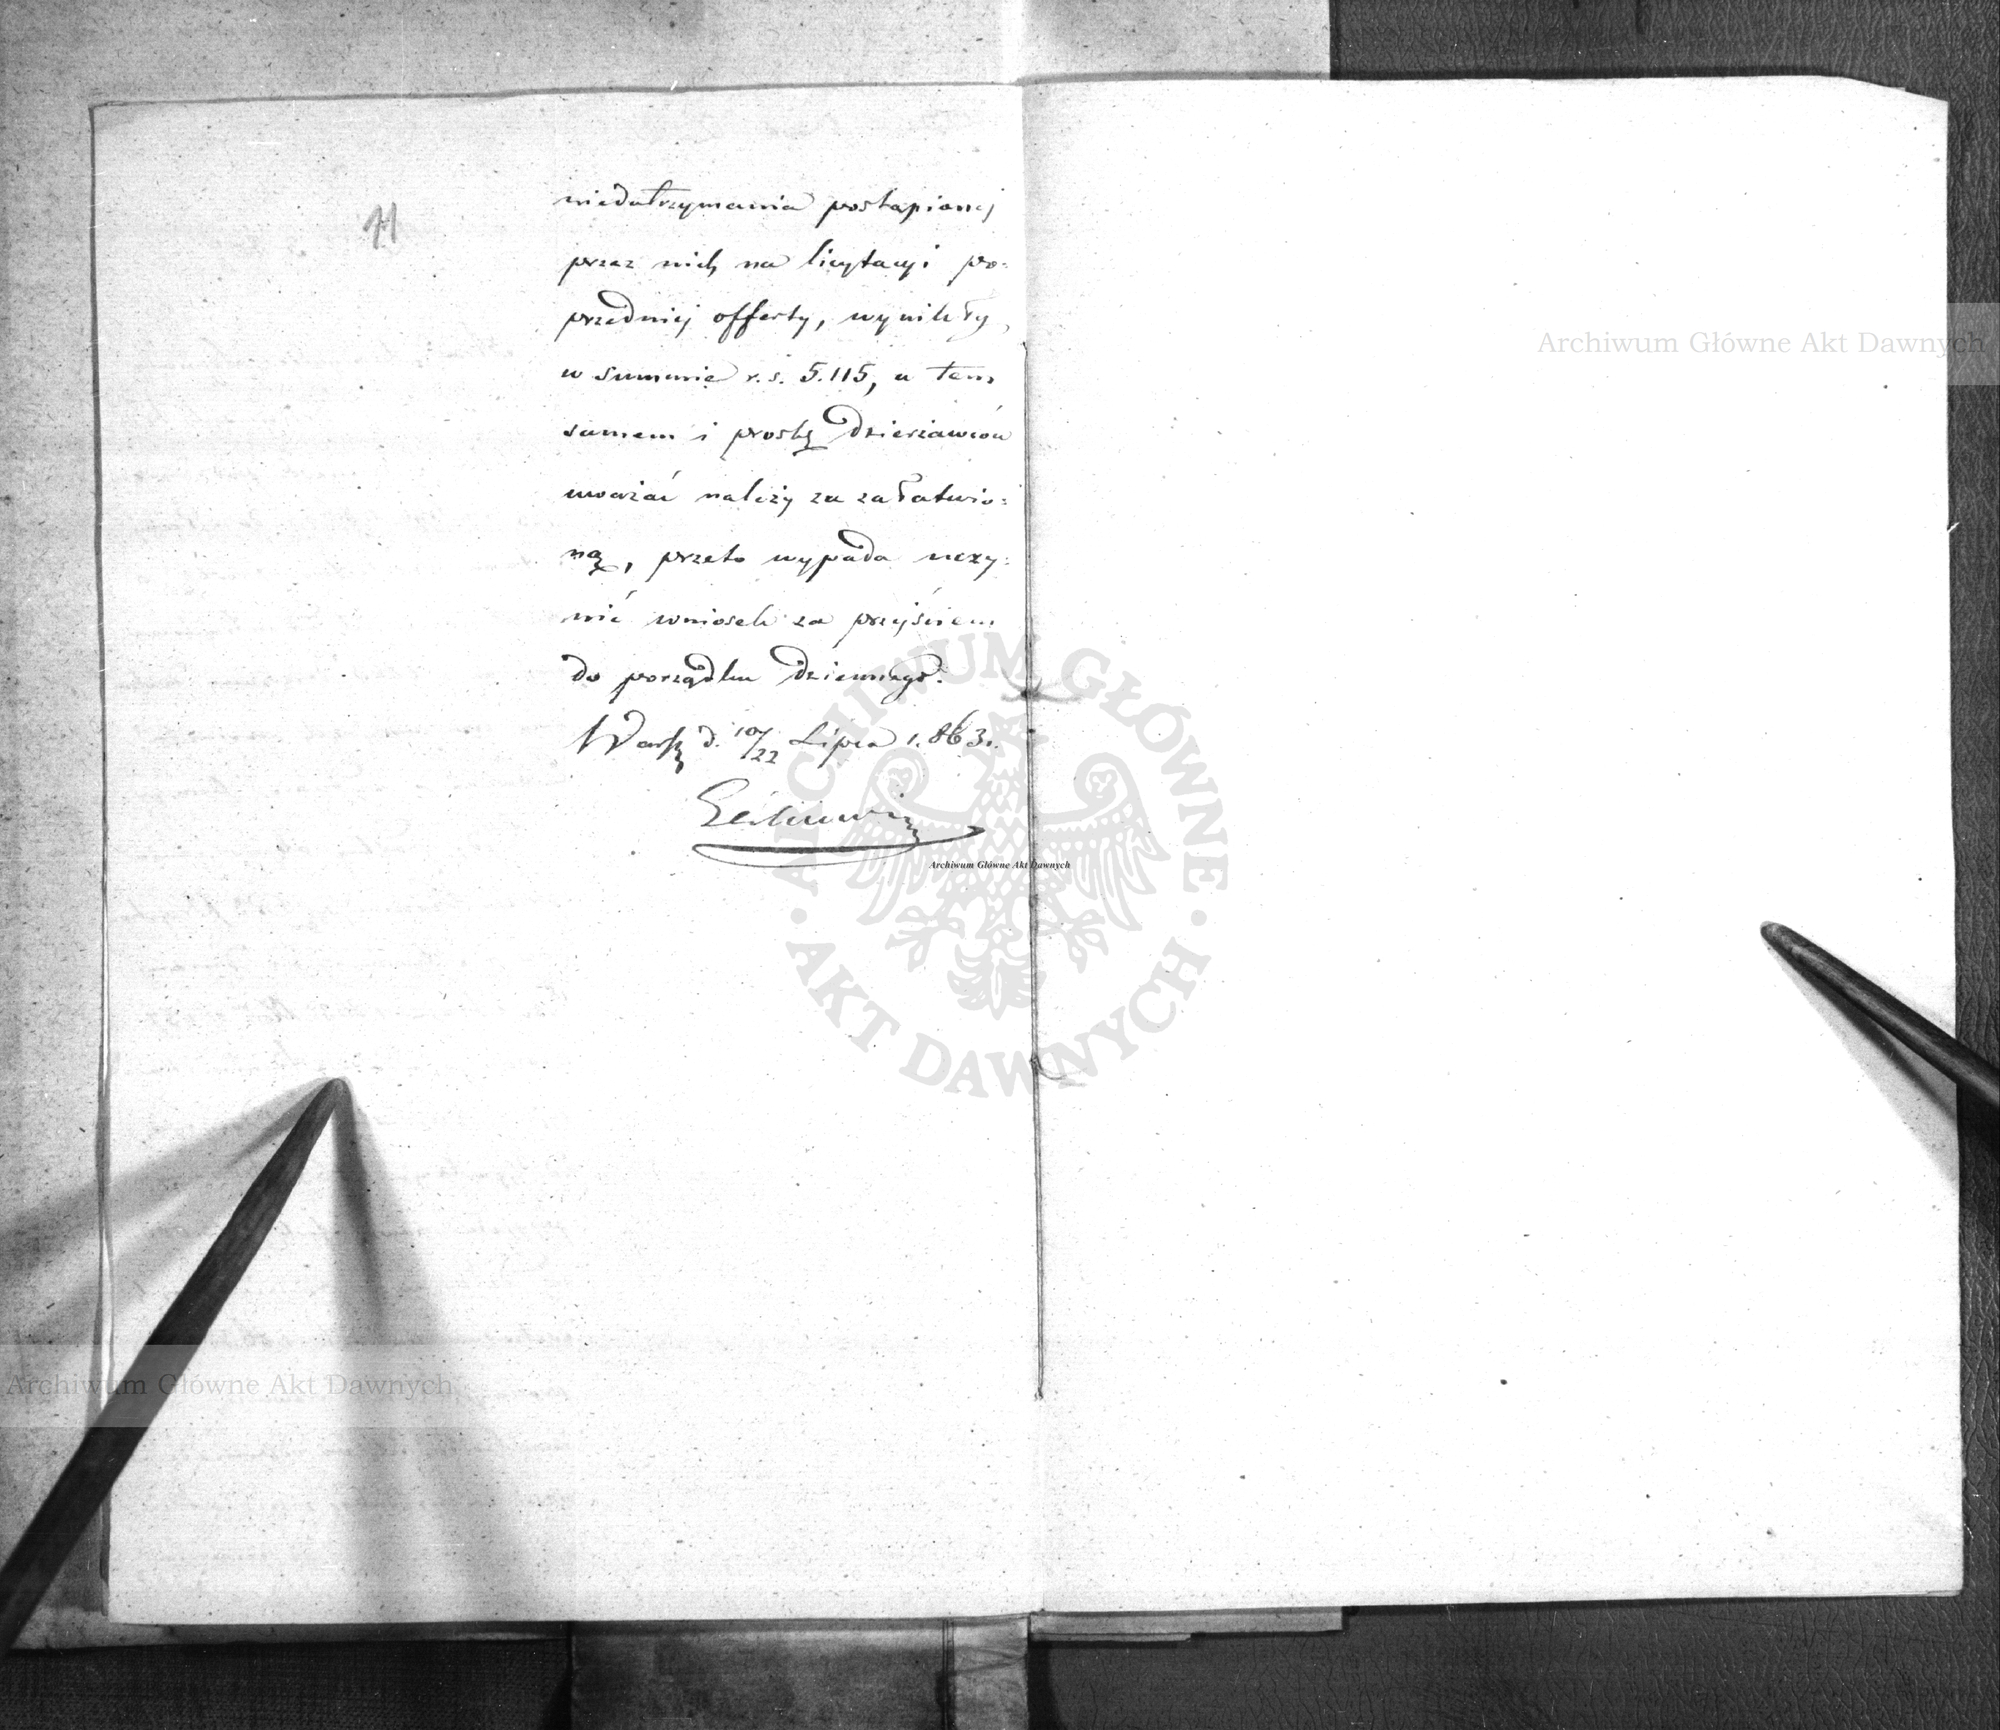 11
niedotrzymania postąpionej
przez nich na licytacyi po=
przedniej offerty, wynikły,
w summie r.s. 5.115, a tem
samem i prośbę dzierżawców
uważać należy za załatwio=
ną, przeto wypada uczy=
nić wniosek za przyjściem
do porządku dziennego.
Warsz d. 10/22 Lipca 1.863 r.
Archiwum Główne Akt Dawnych
ARCHIWUM GŁÓWNE
AKT DAWNYCH
Archiwum Główne Akt Dawnych
Archiwum Główne Akt Dawnych